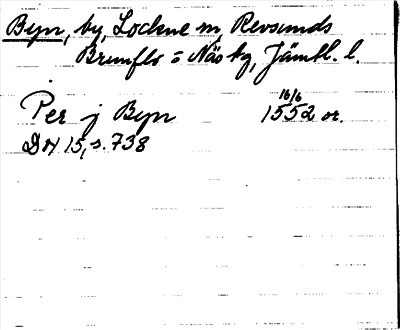 Byn, by, Lockne sn, Revsunds
Brunflo o Näs tg, Jämtl. l.
Per j Byn 16/6 1552 or.
DN 15, s. 738